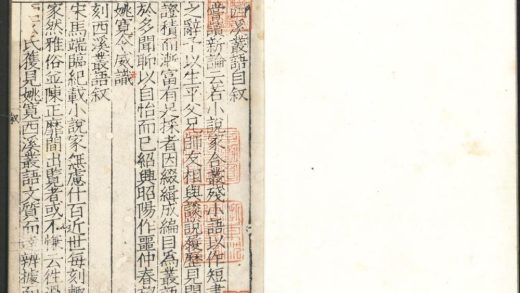 西溪叢語自叙
嘗讀新論云若小說家合叢殘小語以作短書
之辭予以生平父兄師友相與談說履歷見聞
證積而漸富有足採者因綴緝成編目為叢語
於多聞聊以自怡而已紹興昭陽作噩仲春
姚寬令威識
刻西溪叢語叙
宋馬端臨紀載小說家無慮什百近世每刻輒
家然雅俗並陳正靡間出覧者或不慊云往
氏獲見姚寬西溪叢語文質而辨據
叙